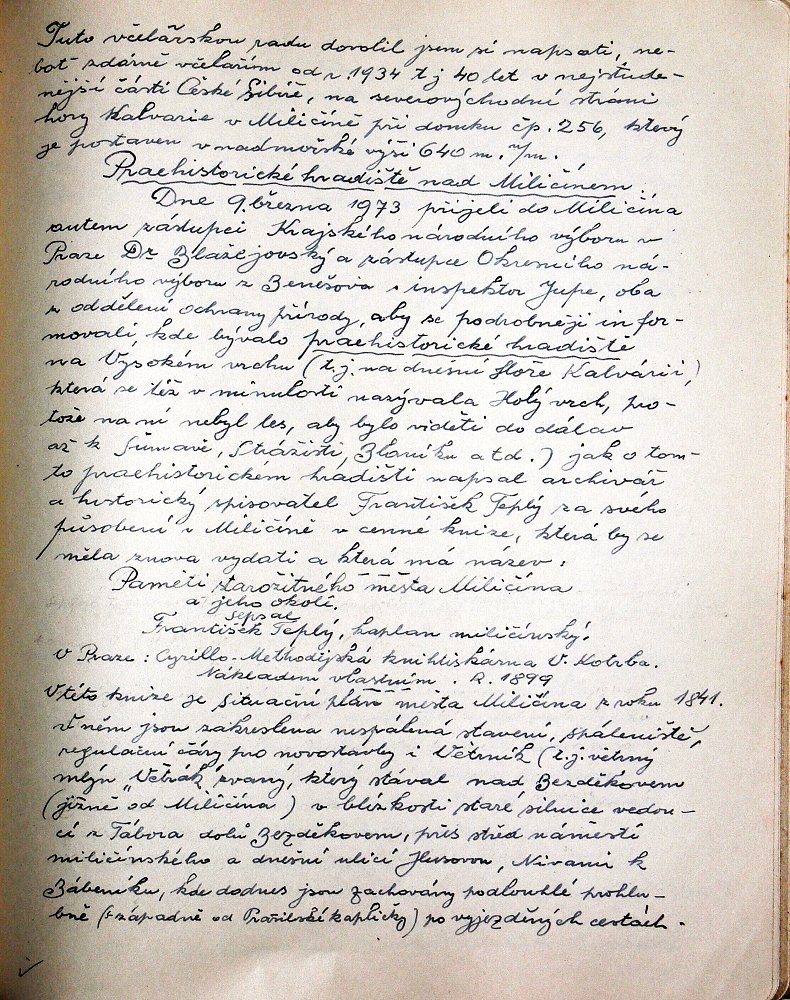 Tuto včelařskou radu dovolil jsem si napsati, ne-
boť zdárně včelařím od r. 1934 t j 40 let v nejstude-
nější části České Sibíře, na severovýchodní stráni
hory Kalvarie v Miličíně při domku čp. 256, který
je postaven v nadmořské výši 640 m. n/m.
Praehistorické hradiště nad Miličínem.
Dne 9. března 1973 přijeli do Miličína
autem zástupci Krajského národního výboru v
Praze Dr Blažejovský a zástupce Okresního ná-
rodního výboru z Benešova inspektor Jupe, oba
z oddělení ochrany přírody, aby se podrobněji infor-
movali, kde bývalo praehistorické hradiště
na Vysokém vrchu (t.j. na dnešní Hoře Kalvárii,
která se též v minulosti nazývala Holý vrch, pro-
tože na ní nebyl les, aby bylo viděti do dálav
až k Šumavě, Strážišti, Blaníku atd.) jak o tom-
to praehistorickém hradišti napsal archivář
a historický spisovatel František Teplý za svého
působení v Miličíně v cenné knize, která by se
měla znova vydati a která má název:
Paměti starožitného města Miličína
a jeho okolí.
Sepsal
František Teplý, kaplan miličínský.
V Praze: Cyrillo-Methodějská knihtiskárna V. Kotrba.
Nákladem vlastním. R. 1899
V této knize je situační plán města Miličína z roku 1841.
V něm jsou zakreslena nespálená stavení, spáleniště,
regulační čáry pro novostavby i Větrník (t.j. větrný
mlýn „Větrák" zvaný, který stával nad Bezděkovem
(jižně od Miličína) v blízkosti staré silnice vedou-
cí z Tábora dolů Bezděkovem, přes střed náměstí
miličínského a dnešní ulicí Husovou, Nivami k
Bábeníku, kde dodnes jsou zachovány podlouhlé prohlu-
bně (západně od kapličky) po vyjezděných cestách.